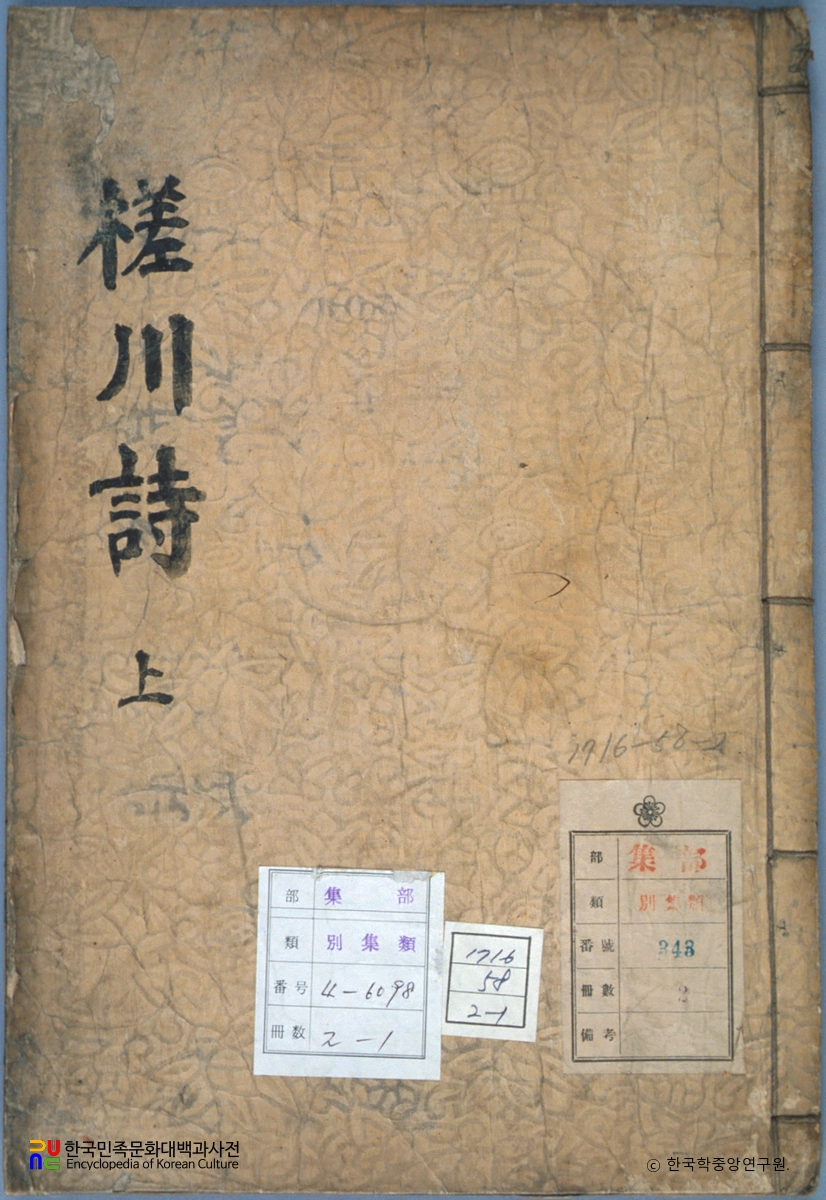 槎川詩
上
1716-58-2
部 集部
類 別集類
番号 4-6098
冊数 2-1
1716
58
2-1
部 集部
類 別集類
番號 343
冊數 2
備考
한국민족문화대백과사전
Encyclopedia of Korean Culture
© 한국학중앙연구원.